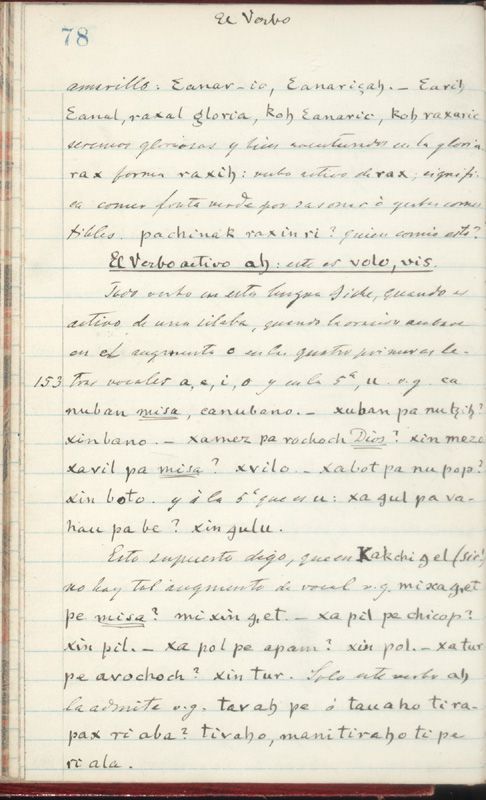 El Verbo
78
amarillo: Ɛanar-ic, Ɛanariçaḥ. — Ɛariḥ
Ɛanal, raxal gloria, koh Ɛanaric, koh raxaric
seremos gloriosos y bien en la gloria
rax forma raxih: verbo activo de rax; signifi-
ca comer fruta verde por sasonar ò yerbas comes
tibles. pachinak raxin ri? quien comio esto?
El Verbo activo ah: este es volo, vis.
Todo verbo en esta lengua Siche, quando es
activo de una silaba, quando la oracion acabare
en el augmento o en las quatro primeras le-
153 tras vocales a, e, i, o y en la 5ª, u. v.g. ca
nuban misa, canubano. — xuban pa nutziḥ?
xinbano. — xamez pa rochoch Dios? xin mezo
xavil pa misa? xvilo. — xabot pa nu pop?
xin boto. y à la 5ª que es u: xa gul pa va-
hau pa be? xin gulu.
Esto supuesto digo, que en Kakchigel (sic!)
no hay tal augmento de vocal v.g. mixaget
pe misa? mi xin get. — xa pil pe chicop?
xin pil. — xa pol pe apam? xin pol. — xa tur
pe avochoch? xin tur. Solo este verbo ah
la admite v.g. tavah pe ó tauaho tira-
pax ri aba? tivaho, mani tiraho ti pe
ri ala.